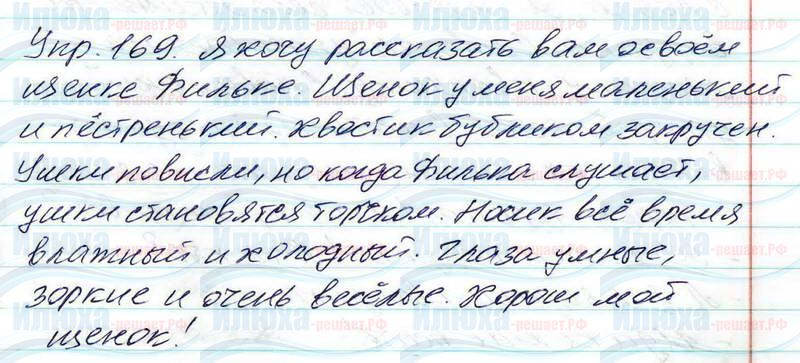 Упр. 169. Я хочу рассказать вам о своём
щенке Фильке. Щенок у меня маленький
и пёстренький. Хвостик бубликом закручен.
Ушки повисли, но когда Филька слушает,
ушки становятся торчком. Носик всё время
влажный и холодный. Глаза умные,
зоркие и очень весёлые. Хорош мой
щенок!